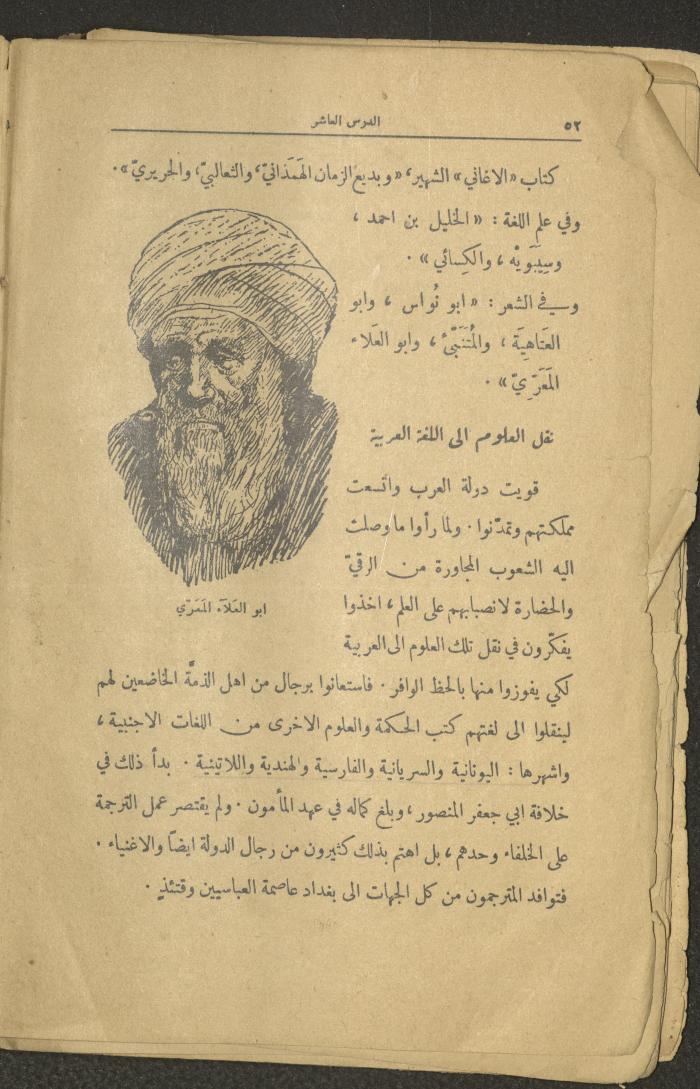 ٥٢
الدرس العاشر
كتاب «الاغاني» الشهير، «وبديع الزمان الهَمَذانيّ، والثعالبيّ، والحريريّ».
وفي علم اللغة : «الخليل بن احمد ،
وسِيبَويْه ، والكِسائي» .
وفي الشعر : «ابو نُواس ، وابو
العَتَاهِيَة ، والمُتَنَبّئ ، وابو العَلاء
المَعَرّيّ» .
نقل العلوم الى اللغة العربية
قويت دولة العرب واتّسعت
مملكتهم وتمدّنوا . ولما رأوا ما وصلت
اليه الشعوب المجاورة من الرقيّ
والحضارة لانصبابهم على العلم ، اخذوا
يفكّرون في نقل تلك العلوم الى العربية
ابو العَلآء المَعَرّي
لكي يفوزوا منها بالحظ الوافر . فاستعانوا برجال من اهل الذمّة الخاضعين لهم
لينقلوا الى لغتهم كتب الحكمة والعلوم الاخرى من اللغات الاجنبية ،
واشهرها : اليونانية والسريانية والفارسية والهندية واللاتينية . بدأ ذلك في
خلافة ابي جعفر المنصور ، وبلغ كماله في عهد المأمون . ولم يقتصر عمل الترجمة
على الخلفاء وحدهم ، بل اهتم بذلك كثيرون من رجال الدولة ايضاً والاغنياء .
فتوافد المترجمون من كل الجهات الى بغداد عاصمة العباسيين وقتئذٍ .